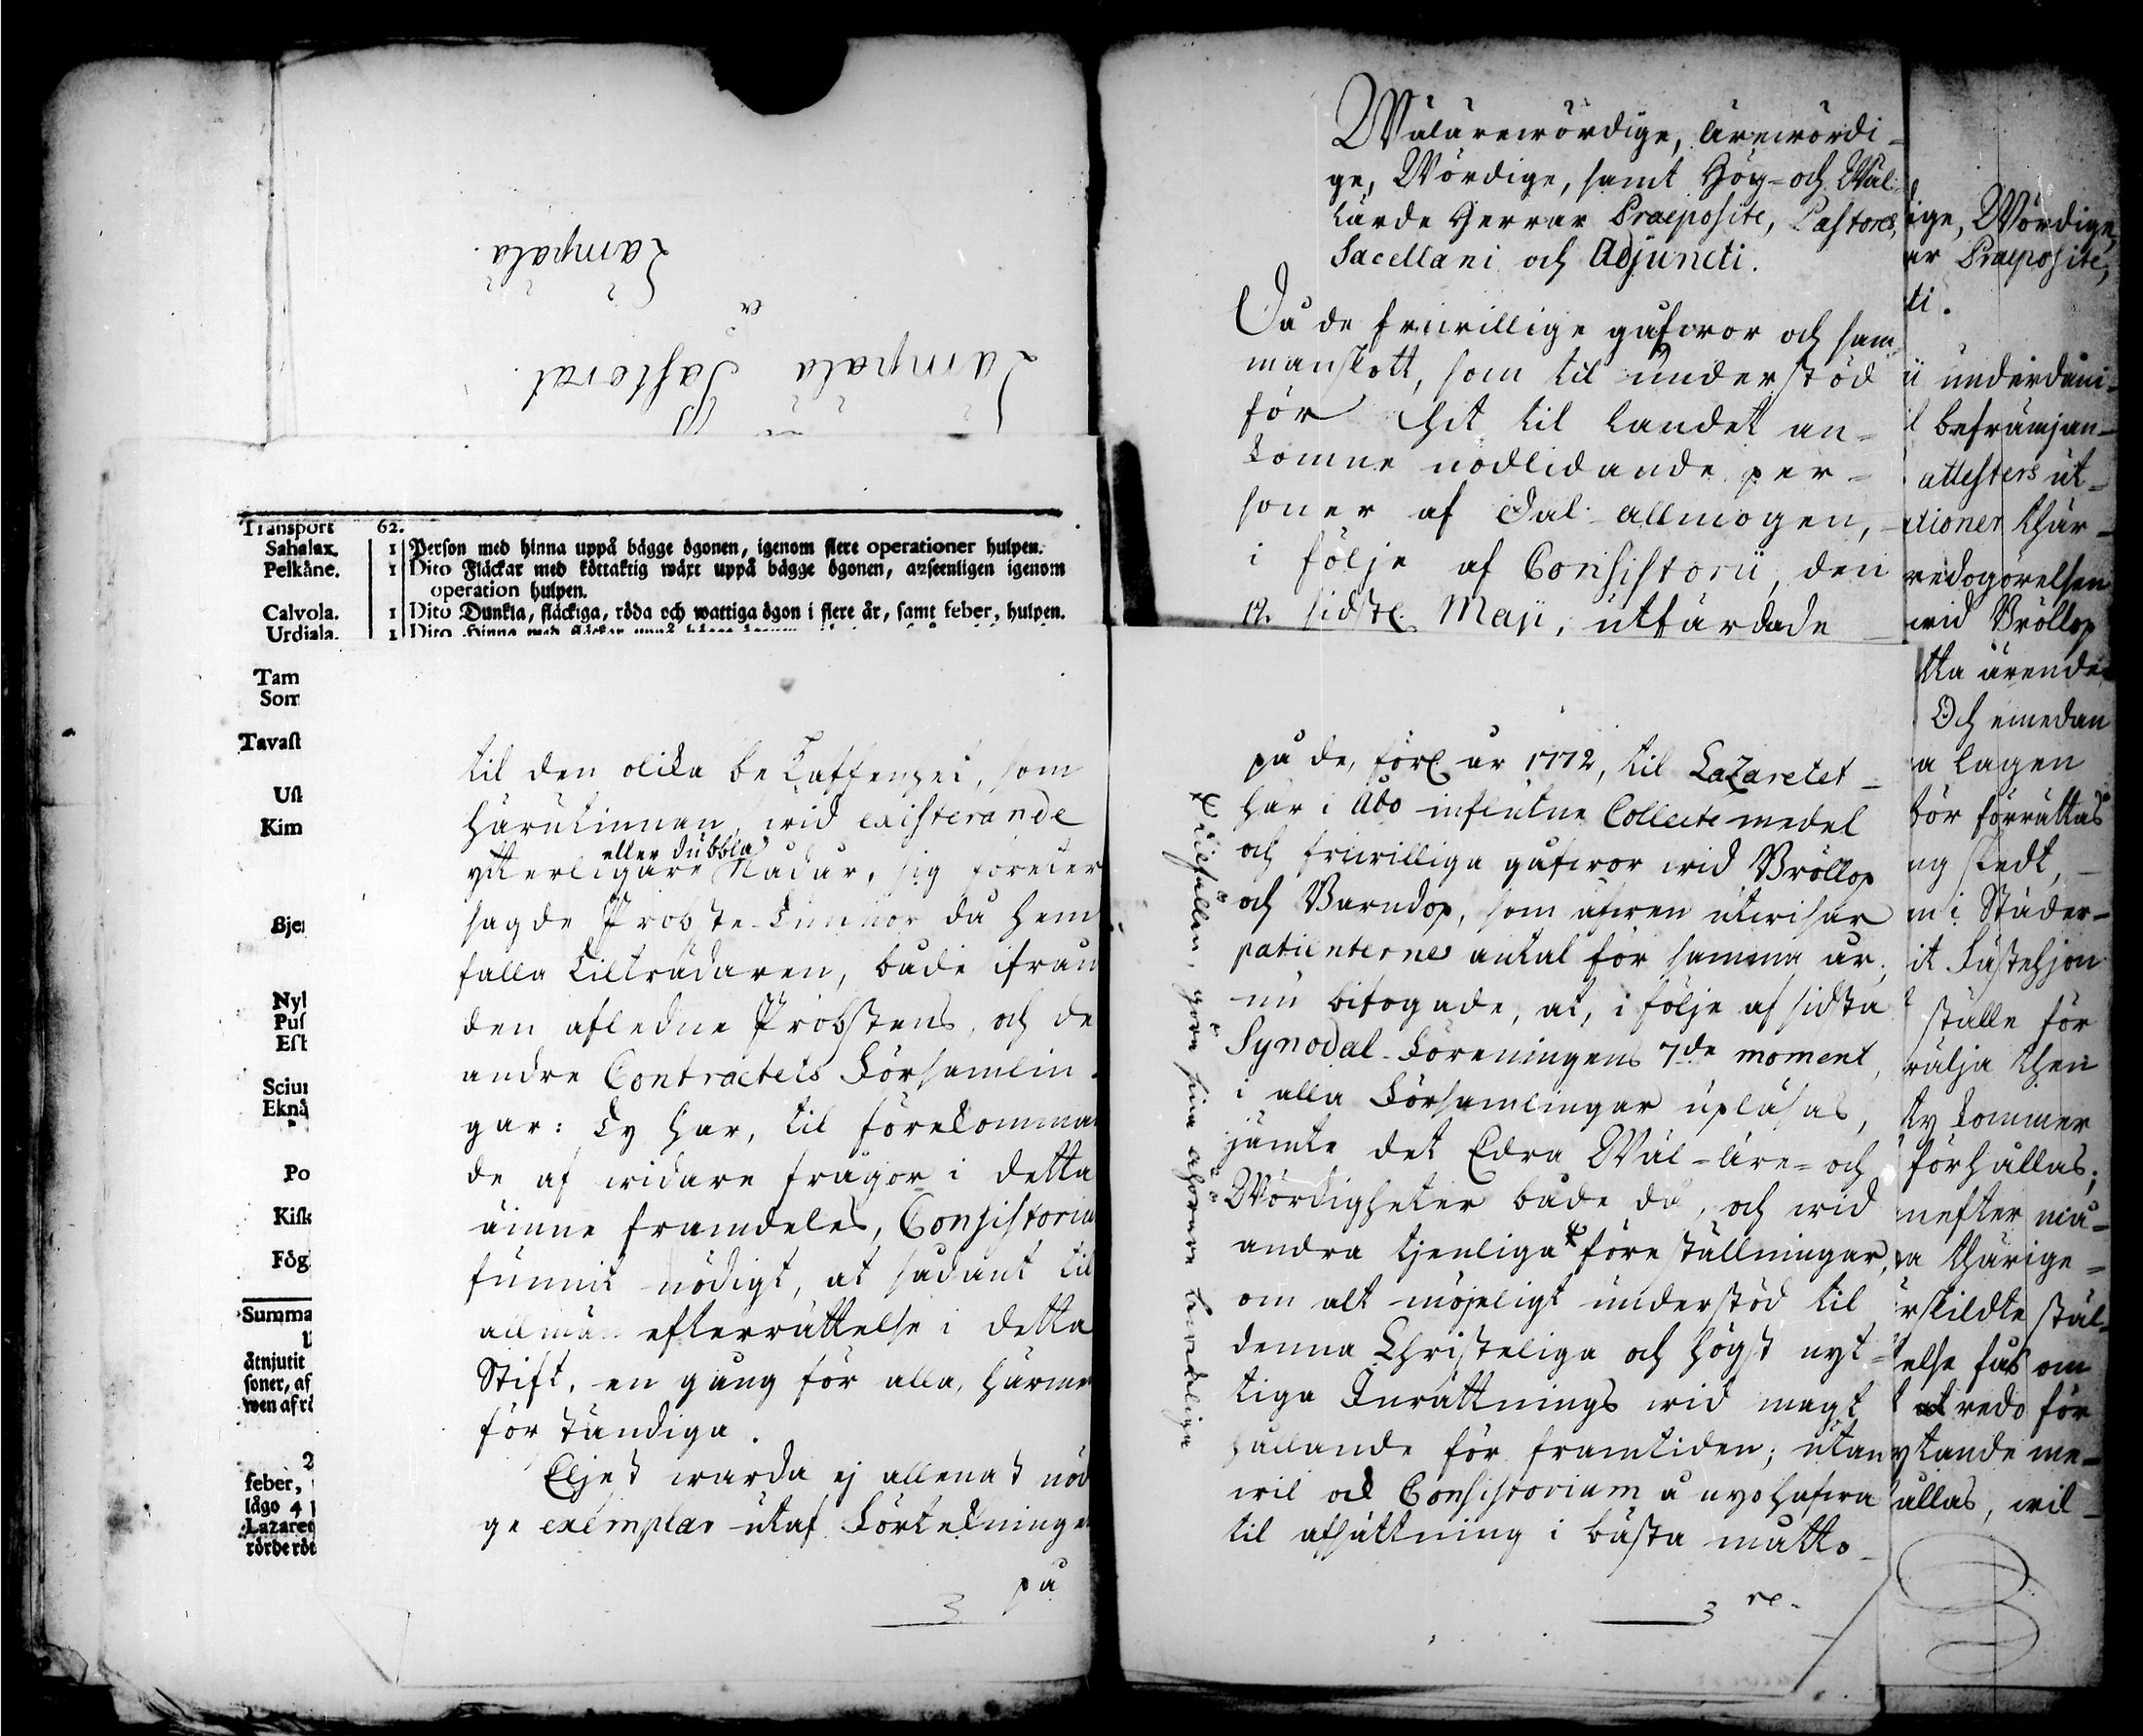 Lämpälä Pastorat.
ex
Lämpälä.
Transport 62.
Sahalax. 1 Person med hinna uppå bägge ögonen, igenom flere operationer hulpen.
Pelkäne. 1 Dito Fläckar med köttaktig wäxt uppå bägge ögonen, anseenligen igenom
operation hulpen.
Calvola. 1 Dito Dunkla, fläckiga, röda och wattiga ögon i flere år, samt feber, hulpen.
Urdiala. 1 Dito Hinna med fläckar uppå bägge ögonen
Tam
Som
Tavast
Ust
Kim
Bjer
Nyl
Pus
Esb
Sciun
Eknä
Po
Kisk
Fög
Summa
åtnjutit
soner, af
wen af rö
2
feber,
lågo 4
Lazaret
rörde röt
til den olika beskaffenhet, som
härutinnan, wid existerande
ytterligare eller dubbla Nådår, sig företer
sagde Probste-Tunnor då hem-
falla tilträdaren, både ifrån
den afledne Probstens, och de
andre Contractets Församlin-
gar: Ty har, til förekomman
de af widare frågor i detta
ämne framdeles, Consistorium
funnit nödigt, at sådant til
allmän efterrättelse i detta
Stift, en gång för alla, härme
förständiga.
Eljest warda ej allenast nöd
ge exemplar utaf Förtekninge
på
Wälärewördige, Ärewördi-
ge, Wördige, samt Hög- och Wäl-
lärde Herrar Praeposite, Pastores,
Sacellani och Adjuncti.
Då de friwillige gåfwor och sam-
manskott, som til understöd
för hit til landet an-
komne nödlidande per-
soner af Dal-allmogen,
i följe af Consistorii, den
12. sidstl. Maji, utfärdade
på de, förl. år 1772, til Lazaretet
här i Åbo influtne Collecte medel
och friwilliga gåfwor wid Bröllop
och Barndop, som äfwen utwisar
patienternes antal för samma år,
nu bifogade, at, i följe af sidsta
Synodal-Föreningens 7de moment,
i alla Församlingar upläsas,
jämte det Edra Wäl-Äre- och
Wördigheter både då, och wid
andra tjenliga * föreställningar,
om alt möjeligt understöd til
denna Christeliga och högst nyt-
tiga Inrättnings wid magt
hållande för framtiden; utan
wil ock Consistorium å nyo hafwa
til afsättning i bästa måtto
re-
* tilfällen, göra sina åhörare beweklige
ige, Wördige,
ar Praeposite,
ti.
ii underdåni-
l befrämjan-
attesters ut-
ctioner thär-
redogörelsen
wid Bröllop
tta ärende.
Och emedan
a lagen
bör förrättas
ag skedt,
m i Städer-
it Fästehjon
ställe för
wälja then
ty kommer
förhållas;
nefter må-
a thärige-
rskildte stäl-
else fås om
redo för
ytande me-
ållas, wil